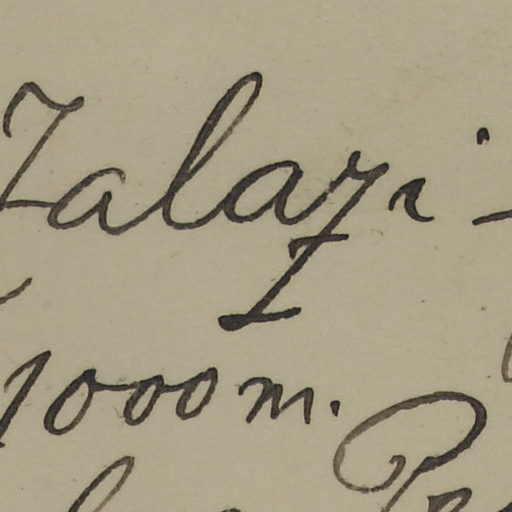 Zalazi -
I
1000 m.